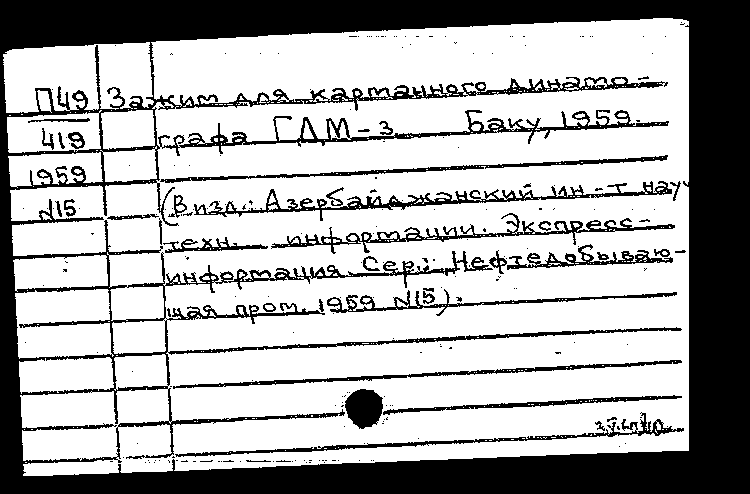 П49 Зажим для картанного динамо-
419 графа ГДМ-3 Баку, 1959.
1959
N15 (В изд.: Азербайджанский ин-т науч
техн. информации. Экспресс-
информация. Сер.: Нефтедобываю-
щая пром. 1959 N15).